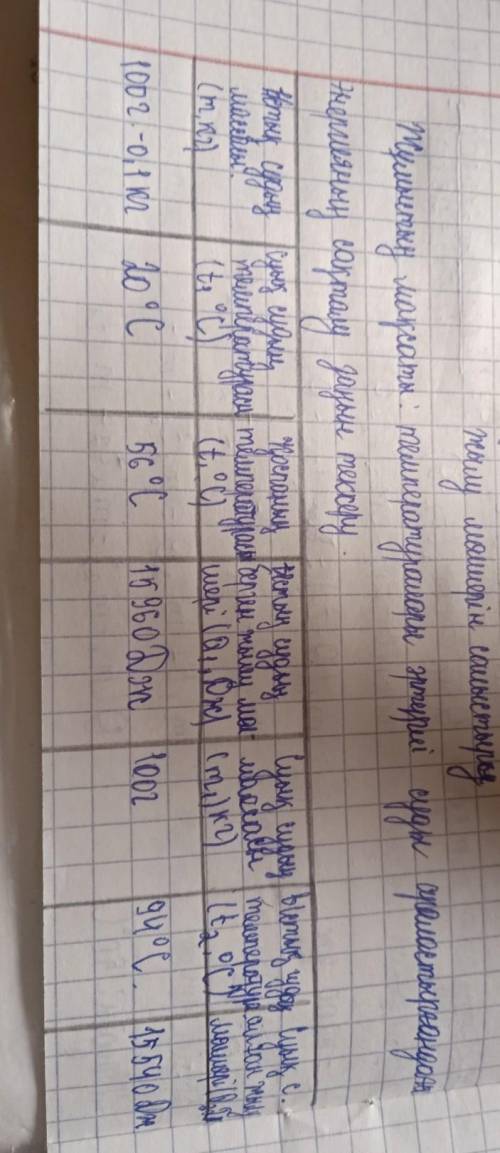 жылу мөлшерін салыстыру
Жұмыстың мақсаты: температуралары әртүрлі суды араластырғандағы
Энергияның сақталу заңын тексеру.
Ыстық судың
массасы.
(m, кг)
Суық судың
температурасы
(t₁ °C)
Қоспаның
температурасы
(t, °C)
Ыстық судың
берген жылу мөл-
шері (Q₁, Дж)
Суық судың
массасы
(m₁) кг)
Ыстық судың
температура
(t₂, °C)
Суық с.
алған жылу
мөлшері
100г-0,1кг
20°C
56°C
15960Дж
100г
94°C.
15540Дж